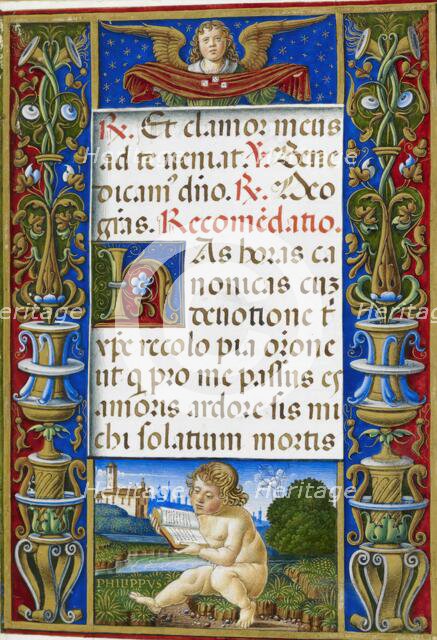 R. Et clamor meus
ad te veniat. V. Bene
dicam' dño. R. Deo
gr̃as. Recomẽdatio.
Has horas ca
nonicas cuȝ
devotione t'
xp̃e recolo pia or̃one
ut q pro me passus es
amoris ardore sis mi
chi solatium mortis
PHILIPPVS